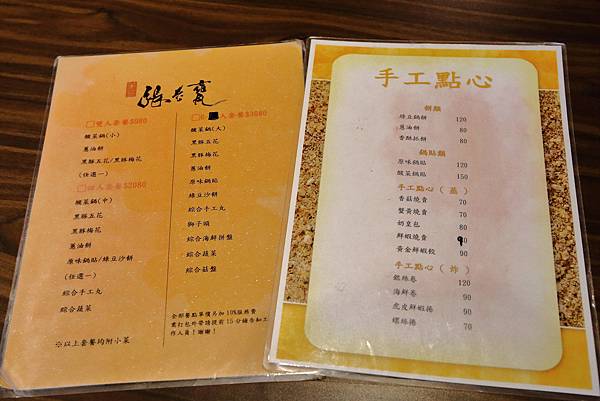 張吾寶
□雙人套餐$980
酸菜鍋(小)
蔥油餅
黑豚五花/黑豚梅花
(任選一)
□四人套餐$2080
酸菜鍋(中)
黑豚五花
黑豚梅花
蔥油餅
原味鍋貼/綠豆沙餅
(任選一)
綜合手工丸
綜合蔬菜
※以上套餐均附小菜
人套餐$3980
酸菜鍋(大)
黑豚五花
黑豚梅花
蔥油餅
原味鍋貼
綠豆沙餅
綜合手工丸
獅子頭
綜合海鮮拼盤
綜合蔬菜
綜合菇盤
全部餐點單價另加10%服務費
需打包外帶請提前15分鐘告知工
作人員！謝謝！
手工點心
餅類
綠豆鍋餅 120
蔥油餅 80
香酥抓餅 80
鍋貼類
原味鍋貼 120
酸菜鍋貼 150
手工點心(蒸)
香菇燒賣 70
蟹黃燒賣 70
奶皇包 80
鮮蝦燒賣 90
黃金鮮蝦餃 90
手工點心(炸)
銀絲卷 120
海鮮卷 90
虎皮鮮蝦捲 90
螺絲捲 70